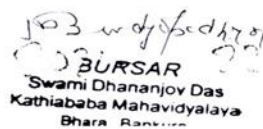 BURSAR
Swami Dhananjoy Das
Kathiababa Mahavidyalaya
Bhara, Bankura